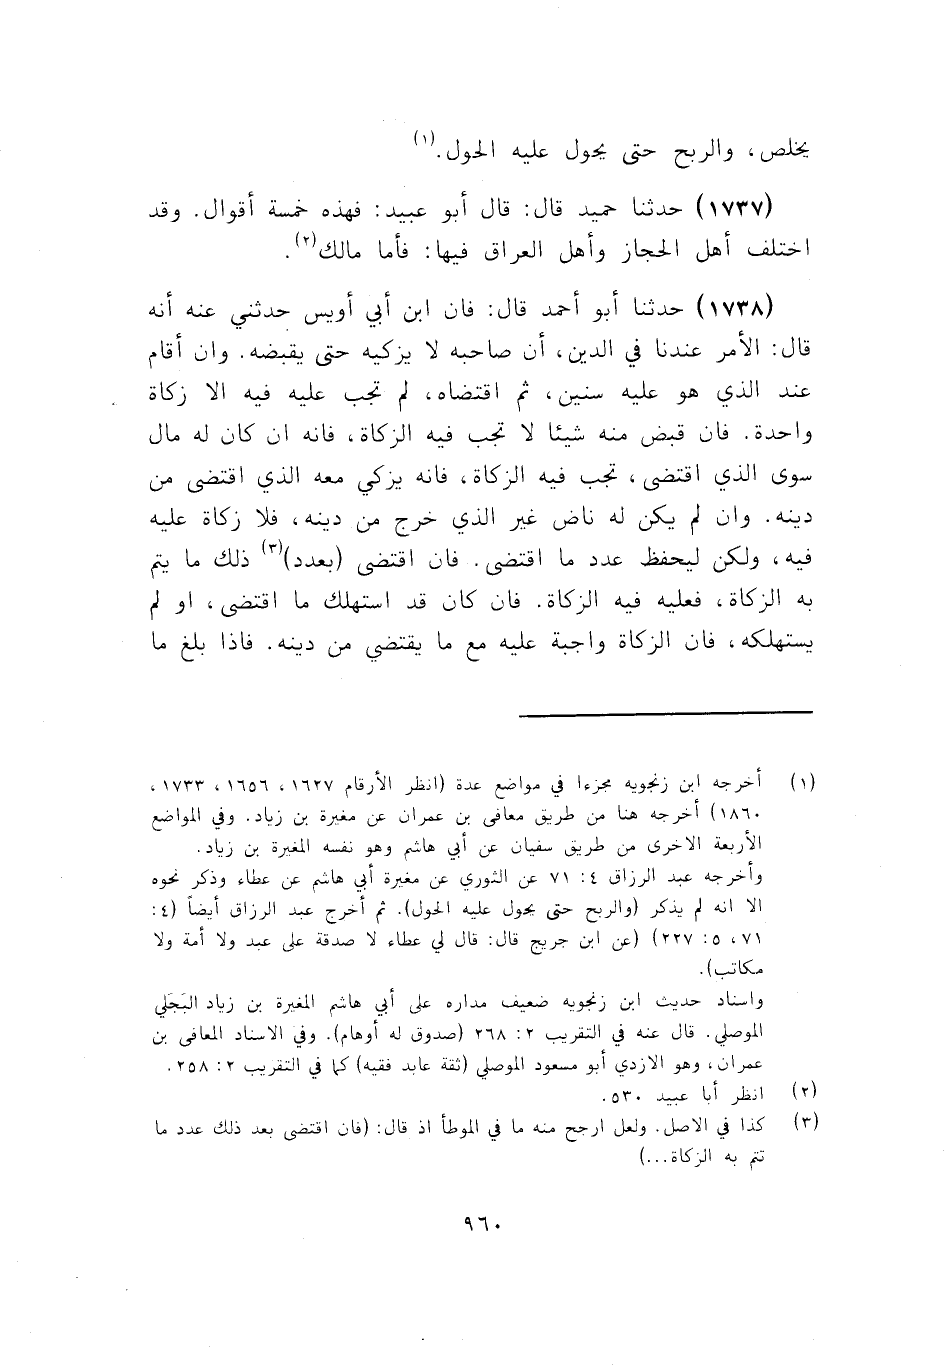 يخلص، والربح حتى يحول عليه الحول.(١)
(١٧٣٧) حدثنا حميد قال: قال أبو عبيد: فهذه خمسة أقوال. وقد
اختلف أهل الحجاز وأهل العراق فيها: فأما مالك(٢).
(١٧٣٨) حدثنا أبو أحمد قال: فان ابن أبي أويس حدثني عنه أنه
قال: الأمر عندنا في الدين، أن صاحبه لا يزكيه حتى يقبضه. وان أقام
عند الذي هو عليه سنين، ثم اقتضاه، لم تجب عليه فيه الا زكاة
واحدة. فان قبض منه شيئا لا تجب فيه الزكاة، فانه ان كان له مال
سوى الذي اقتضى، تجب فيه الزكاة، فانه يزكي معه الذي اقتضى من
دينه. وان لم يكن له ناض غير الذي خرج من دينه، فلا زكاة عليه
فيه، ولكن ليحفظ عدد ما اقتضى. فان اقتضى (بعدد)(٣) ذلك ما يتم
به الزكاة، فعليه فيه الزكاة. فان كان قد استهلك ما اقتضى، او لم
يستهلكه، فان الزكاة واجبة عليه مع ما يقتضي من دينه. فاذا بلغ ما
(١) أخرجه ابن زنجويه مجزءا في مواضع عدة (انظر الأرقام ١٦٢٧، ١٦٥٦، ١٧٣٣،
١٨٦٠) أخرجه هنا من طريق معافى بن عمران عن مغيرة بن زياد. وفي المواضع
الأربعة الاخرى من طريق سفيان عن أبي هاشم وهو نفسه المغيرة بن زياد.
وأخرجه عبد الرزاق ٤: ٧١ عن الثوري عن مغيرة أبي هاشم عن عطاء وذكر نحوه
الا انه لم يذكر (والربح حتى يحول عليه الحول). ثم أخرج عبد الرزاق أيضاً (٤:
٧١، ٥: ٢٢٧) (عن ابن جريج قال: قال لي عطاء لا صدقة على عبد ولا أمة ولا
مكاتب).
واسناد حديث ابن زنجويه ضعيف مداره على أبي هاشم المغيرة بن زياد البَجَلي
الموصلي. قال عنه في التقريب ٢: ٢٦٨ (صدوق له أوهام). وفي الاسناد المعافى بن
عمران، وهو الازدي أبو مسعود الموصلي (ثقة عابد فقيه) كما في التقريب ٢: ٢٥٨.
(٢) انظر أبا عبيد ٥٣٠.
(٣) كذا في الاصل. ولعل ارجح منه ما في الموطأ اذ قال: (فان اقتضى بعد ذلك عدد ما
تتم به الزكاة...)
٩٦٠